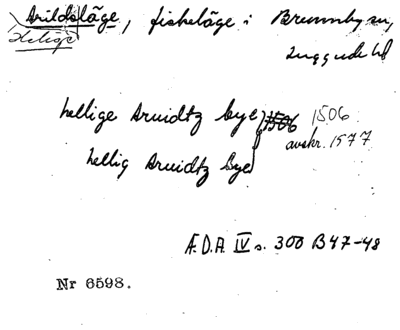 Arildsläge, fiskeläge i Brunnby sn,
Helige
Luggude hd
hellige Aruidtz bye 1506 1506
avskr. 1577
hellig Aruidtz bye
Æ.D.A. IV s. 300 B47-48
Nr 6598.